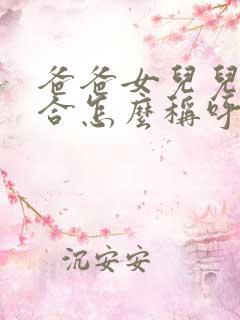 爸爸女兒兒
合怎麼稱呼
沉安安